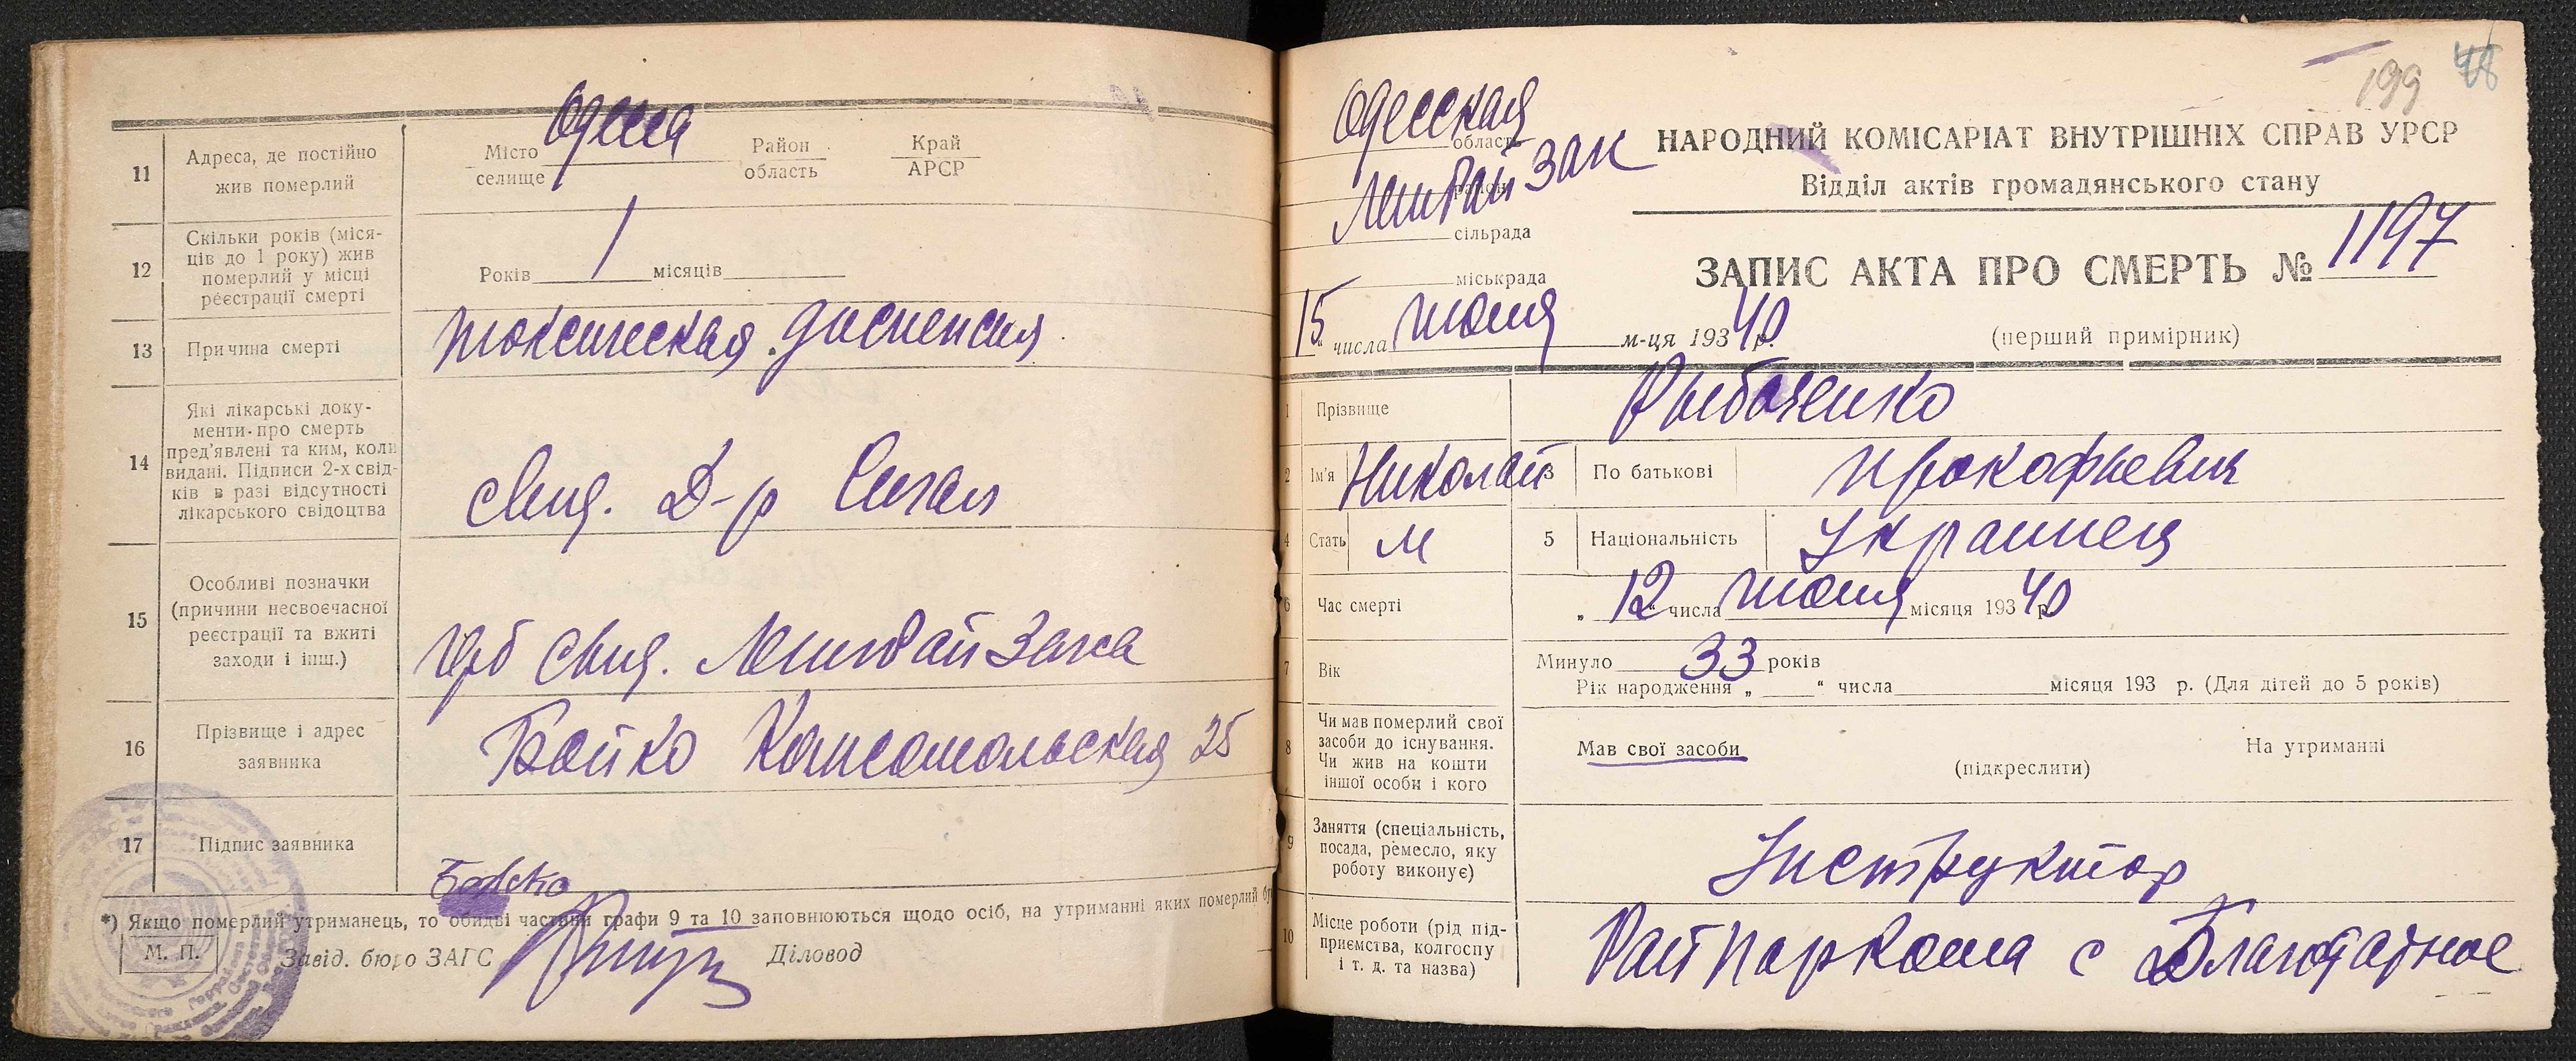 11
Адреса, де постійно
жив померлий
Місто
селище
Одесса
Район
область
Край
АРСР
12
Скільки років (міся-
ців до 1 року) жив
померлий у місці
реєстрації смерті
Років 1 місяців
13
Причина смерті
токсическая диспепсия
14
Які лікарські доку-
менти про смерть
пред'явлені та ким, коли
видані. Підписи 2-х свід-
ків в разі відсутності
лікарського свідоцтва
свид. Д-р Сигал
15
Особливі позначки
(причини несвоєчасної
реєстрації та вжиті
заходи і інш.)
свид. ЛенРайЗагса
16
Прізвище і адрес
заявника
Бойко Комсомольская 25
17
Підпис заявника
Бойко
*) Якщо померлий утриманець, то обидві частини графи 9 та 10 заповнюються щодо осіб, на утриманні яких померлий
М. П.
Завід. бюро ЗАГС
Діловод
199 48
Одесская
область
ЛенРай ЗАК
район
сільрада
міськрада
НАРОДНИЙ КОМІСАРІАТ ВНУТРІШНІХ СПРАВ УРСР
Відділ актів громадянського стану
ЗАПИС АКТА ПРО СМЕРТЬ № 1197
15 " числа июня м-ця 193 40 р.
(перший примірник)
1 Прізвище Рыбаченко
2 Ім'я Николай 3 По батькові Прокофьевич
4 Стать м 5 Національність Украинец
6 Час смерті „ 12 " числа июня місяця 193 40 р.
7 Вік
Минуло 33 років
Рік народження „ “ числа місяця 193 р. (Для дітей до 5 років)
8
Чи мав померлий свої
засоби до існування.
Чи жив на кошти
іншої особи і кого
Мав свої засоби
(підкреслити)
На утриманні
9
Заняття (спеціальність,
посада, ремесло, яку
роботу виконує)
Инструктор
10
Місце роботи (рід під-
приємства, колгоспу
і т. д. та назва)
РайПаркома с Благодатное